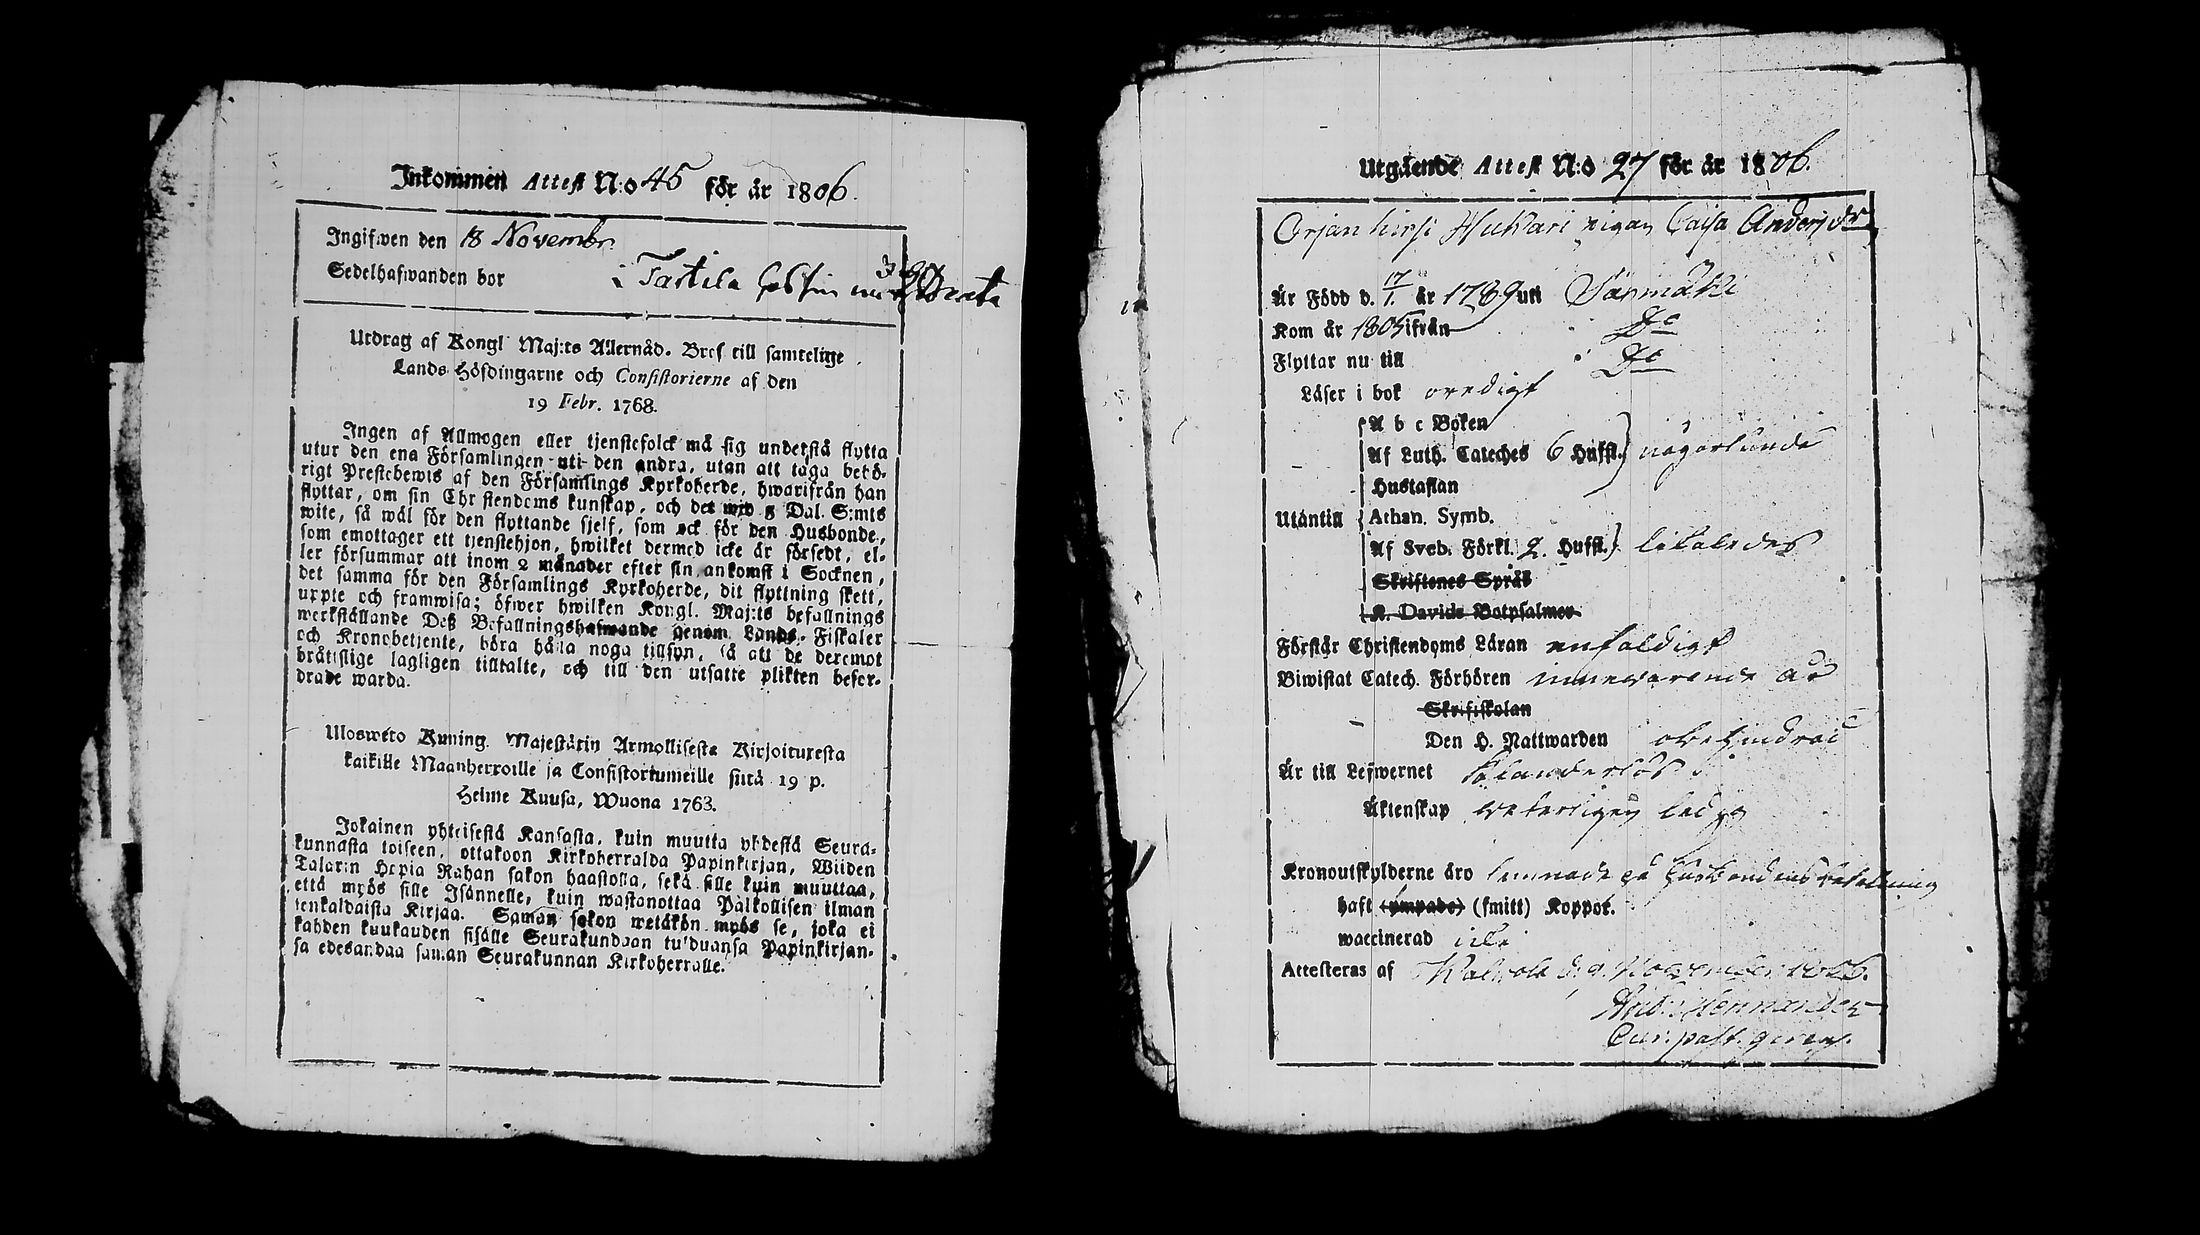 Inkommen Attest N:o 45 för år 1806.
Ingifwen den 18 Novembr
Sedelhafwanden bor i Tartila
Utdrag af Kongl Maj:ts Allernåd. Bref till samtelige
Lands Höfdingarne och Consistorierne af den
19 Febr. 1768.
Ingen af Allmogen eller tjenstefolck må sig understå flytta
utur den ena Församlingen uti den andra, utan att taga behö-
rigt Prestebewis af den Församlings Kyrkoherde, hwarifrån han
flyttar, om sin Christendoms kunskap, och det wid 5 Dal. S:mts
wite, så wäl för den flyttande sjelf, som ock för den Husbonde,
som emottager ett tjenstehjon, hwilket dermed icke är försedt, el-
ler försummar att inom 2 månader efter sin ankomst i Socknen,
det samma för den Församlings Kyrkoherde, dit flyttning skett,
uppte och framwisa; öfwer hwilken Kongl. Maj:ts befallnings
werkställande Deß Befallningshafwande genom Lands-Fiskaler
och Kronobetjente, böra hålla noga tillsyn, så att de deremot
bråttslige lagligen tilltalte, och till den utsatte plikten befor-
drade warda.
Uloswéto Kuning. Majestätin Armollisesta Kirjoituxesta
kaikille Maanherroille ja Consistoriumeille siitä 19 p.
Helme Kuusa, Wuona 1763.
Jokainen yhteisestä Kansasta, kuin muutta yhdestä Seura-
kunnasta toiseen, ottakoon Kirkoherralda Papinkirjan, Wiiden
Talarin Hopia Rahan sakon haastolla, sekä sille kuin muuttaa,
että myös sille Isännelle, kuin wastanottaa Palkollisen ilman
senkaldaista Kirjaa. Saman sakon wetäkön myös se, joka ei
kahden kuukauden sisälle Seurakundaan tulduansa Papinkirjan-
sa edesandaa saman Seurakunnan Kirkoherralle.
Utgående Attest N:o 27 för år 1806.
Orjanhirsi Hukari pigan Caisa Andersdr
Är Född d. 17/1. år 1789 uti Sarmäki
Kom år 1805 ifrån Do
Flyttar nu till Do
Läser i bok oredigt
A b c Boken
Af Luth. Cateches 6 Hufst. någorlunda
Hustaflan
Utantill Athan. Symb.
Af Sveb. Förkl. 2. Hufst. likaledes
Skriftenes Språk
K. Davids Botpsalmer
Förstår Christendoms Läran enfaldigt
Biwistat Catech. Förhören innewarande år
Skriftskolan
Den H. Nattwarden obehindrad
Är till Lefwernet
Äktenskap weterligen ledig
Kronoutskylderne äro lemnade på husbondens betalning
haft (ympade) (smitt) Koppor.
waccinerad icke
Attesteras af d. 9. November 1806.
Cur. past. gerens.